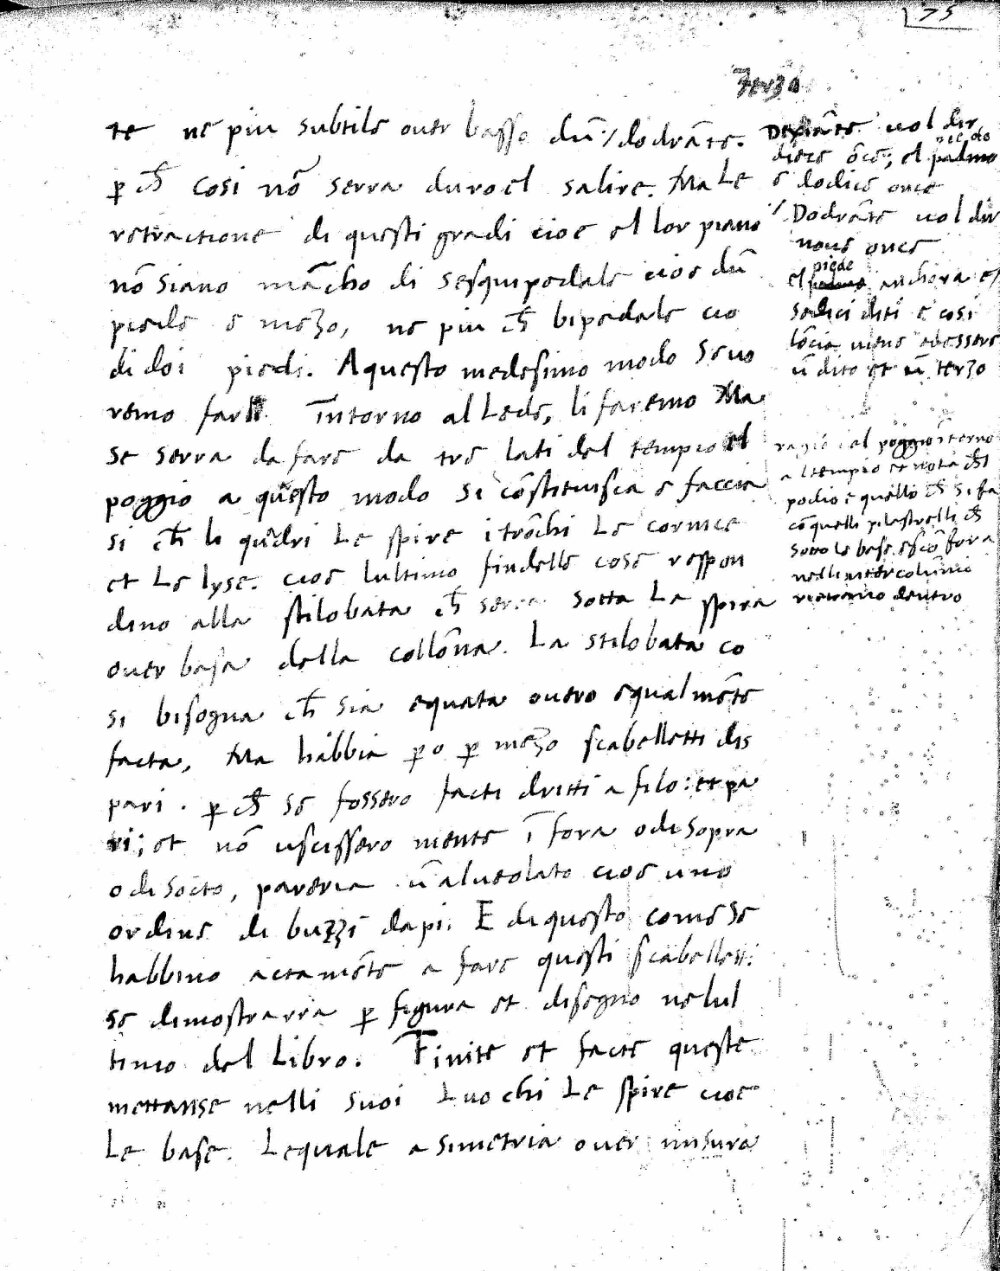 75
Terzo
te ne piu subtile over basse dũ / dodrãte.
p ch̃ cosi nõ serra duro el salire. Ma Le
retractione di questi gradi cioe el lor piano
nõ siano mãcho di sesquipedale cioe dũ
piede e mezo, ne piu ch̃ bipedale cio
di doi piedi. A questo medesimo modo se vo
remo fare ĩntorno al Lede, li faremo Ma
se serra da fare da tre lati del tempio el
poggio a questo modo si cõstituisca e faccia
si ch̃ li quadri Le spire i trõchi Le cornice
et Le lyse. cioe lultimo fin delle cose respon
dino alla stilobata ch̃ serra sotta La spira
over basa della collõna. La stilobata co
si bisogna ch̃ sia equata overo equalmẽte
facta, Ma habbia p o p mezo scabelletti dis
pari. p ch̃ se fossero facti dritti a filo: et pa
ri; et nõ uscissero niente ĩ fora o di sopra
o di socto, pareria ũ alveolato cioe uno
ordine di buzzi dapi. E di questo come se
habbino actamẽte a fare questi scabelletti
se dimostrarra p figura et disegno nelul
timo del Libro. Finite et facte queste
mettanse nelli suoi Luochi Le spire cioe
Le base. Lequale a simetria over misura
Dextãte vol dir
diece õce; el palmo
piedo
e dodice once
/ Dodrãte vol dir
nove once
piede
el palmo anchora e /
sedici diti e cosi
ũ dito et ũ terzo
al poggio ĩterno
al tempio et nota ch̃
podio e quello ch̃ si fa
cõ quelli pilastrelli ch̃
sotto le base escõ fora
nelli intercolũnio
dentro